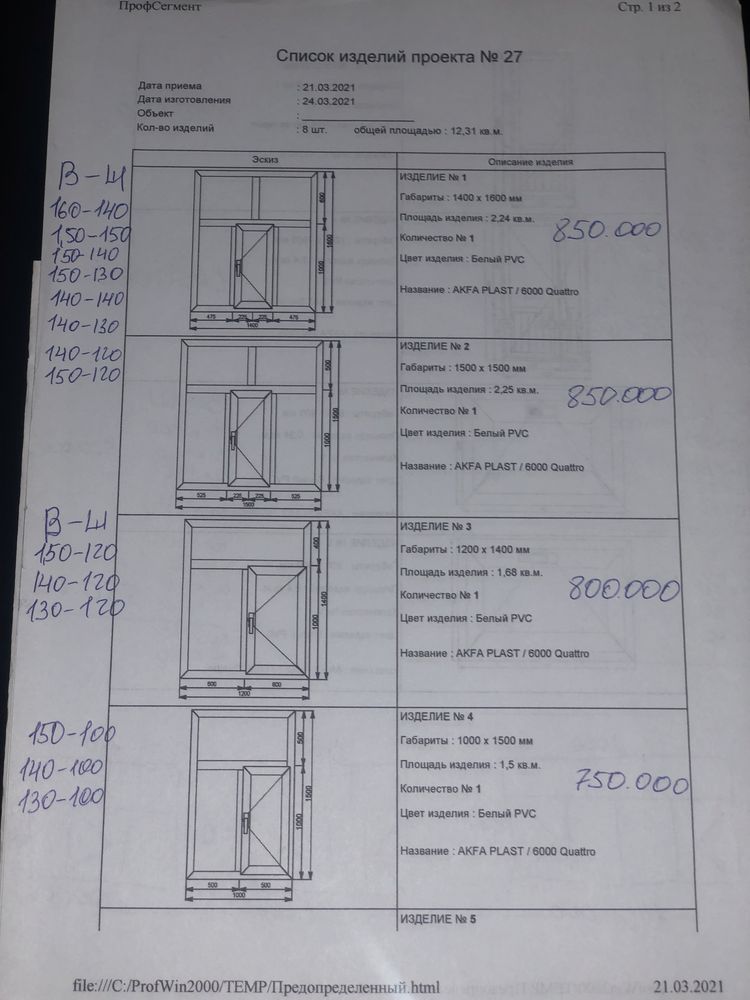 ПрофСегмент Стр. 1 из 2
Список изделий проекта № 27
Дата приема : 21.03.2021
Дата изготовления : 24.03.2021
Объект :
Кол-во изделий : 8 шт. общей площадью : 12,31 кв.м.
Эскиз Описание изделия
В-Ш
160-140
1,50-150
150-140
150-130
140-140
140-130
140-120
150-120
600
1000
1600
475 225 225 475
1400
ИЗДЕЛИЕ № 1
Габариты : 1400 x 1600 мм
Площадь изделия : 2,24 кв.м.
Количество № 1
850.000
Цвет изделия : Белый PVC
Название : AKFA PLAST / 6000 Quattro
500
1000
1500
525 225 225 525
1500
ИЗДЕЛИЕ № 2
Габариты : 1500 x 1500 мм
Площадь изделия : 2,25 кв.м.
850.000
Количество № 1
Цвет изделия : Белый PVC
Название : AKFA PLAST / 6000 Quattro
В-Ш
150-120
140-120
130-120
400
1000
1400
600 600
1200
ИЗДЕЛИЕ № 3
Габариты : 1200 x 1400 мм
Площадь изделия : 1,68 кв.м.
Количество № 1
800.000
Цвет изделия : Белый PVC
Название : AKFA PLAST / 6000 Quattro
150-100
140-100
130-100
500
1000
1500
500 500
1000
ИЗДЕЛИЕ № 4
Габариты : 1000 x 1500 мм
Площадь изделия : 1,5 кв.м.
750.000
Количество № 1
Цвет изделия : Белый PVC
Название : AKFA PLAST / 6000 Quattro
ИЗДЕЛИЕ № 5
file:///C:/ProfWin2000/TEMP/Предопределенный.html 21.03.2021